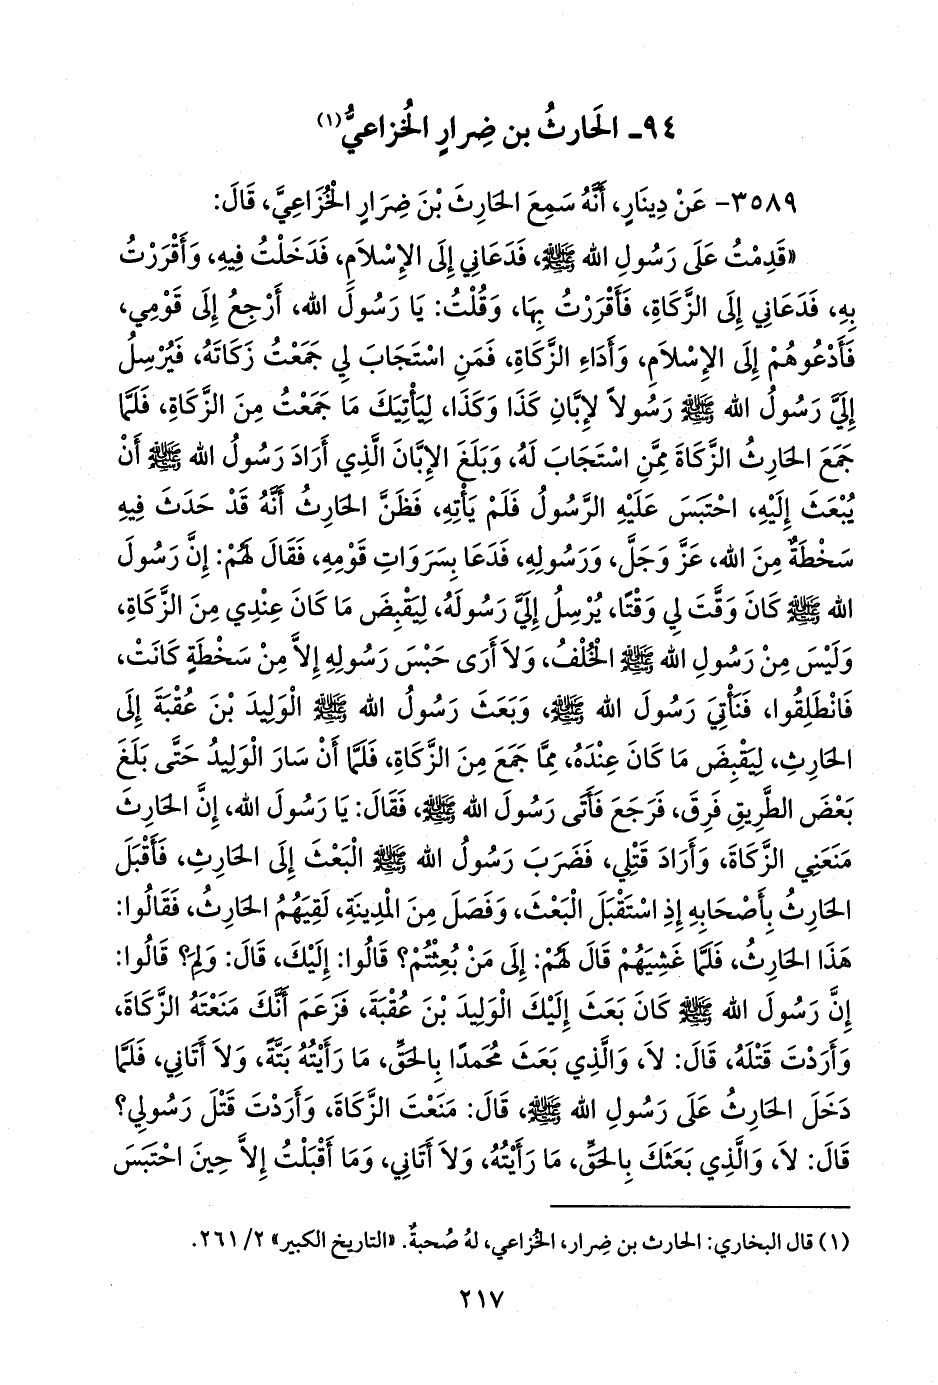 ٩٤ـ الحَارثُ بن ضِرارٍ الخُزاعيُّ(١)
٣٥٨٩- عَنْ دِينَارٍ، أَنَّهُ سَمِعَ الحَارِثَ بْنَ ضِرَارٍ الْخُزَاعِيَّ، قَالَ:
«قَدِمْتُ عَلَى رَسُولِ الله ﷺ، فَدَعَانِي إِلَى الإِسْلَامِ، فَدَخَلْتُ فِيهِ، وَأَقْرَرْتُ
بِهِ، فَدَعَانِي إِلَى الزَّكَاةِ، فَأَقْرَرْتُ بِهَا، وَقُلْتُ: يَا رَسُولَ الله، أَرْجِعُ إِلَى قَوْمِي،
فَأَدْعُوهُمْ إِلَى الإِسْلَامِ، وَأَدَاءِ الزَّكَاةِ، فَمَنِ اسْتَجَابَ لِي جَمَعْتُ زَكَاتَهُ، فَيُرْسِلُ
إِلَيَّ رَسُولُ الله ﷺ رَسُولاً لإِبَّانِ كَذَا وَكَذَا، لِيَأْتِيَكَ مَا جَمَعْتُ مِنَ الزَّكَاةِ، فَلَمَّا
جَمَعَ الحَارِثُ الزَّكَاةَ مِمَّنِ اسْتَجَابَ لَهُ، وَبَلَغَ الإِبَّانَ الَّذِي أَرَادَ رَسُولُ الله ﷺ أَنْ
يُبْعَثَ إِلَيْهِ، احْتَبَسَ عَلَيْهِ الرَّسُولُ فَلَمْ يَأْتِهِ، فَظَنَّ الحَارِثُ أَنَّهُ قَدْ حَدَثَ فِيهِ
سَخْطَةٌ مِنَ الله، عَزَّ وَجَلَّ، وَرَسُولِهِ، فَدَعَا بِسَرَوَاتِ قَوْمِهِ، فَقَالَ لَهُمْ: إِنَّ رَسُولَ
الله ﷺ كَانَ وَقَّتَ لِي وَقْتًا، يُرْسِلُ إِلَيَّ رَسُولَهُ، لِيَقْبِضَ مَا كَانَ عِنْدِي مِنَ الزَّكَاةِ،
وَلَيْسَ مِنْ رَسُولِ الله ﷺ الْخُلْفُ، وَلاَ أَرَى حَبْسَ رَسُولِهِ إِلاَّ مِنْ سَخْطَةٍ كَانَتْ،
فَانْطَلِقُوا، فَنَأْتِيَ رَسُولَ الله ﷺ، وَبَعَثَ رَسُولُ الله ﷺ الْوَلِيدَ بْنَ عُقْبَةَ إِلَى
الحَارِثِ، لِيَقْبِضَ مَا كَانَ عِنْدَهُ، مِمَّا جَمَعَ مِنَ الزَّكَاةِ، فَلَمَّا أَنْ سَارَ الْوَلِيدُ حَتَّى بَلَغَ
بَعْضَ الطَّرِيقِ فَرِقَ، فَرَجَعَ فَأَتَى رَسُولَ الله ﷺ، فَقَالَ: يَا رَسُولَ الله، إِنَّ الحَارِثَ
مَنَعَنِي الزَّكَاةَ، وَأَرَادَ قَتْلِي، فَضَرَبَ رَسُولُ الله ﷺ الْبَعْثَ إِلَى الحَارِثِ، فَأَقْبَلَ
الحَارِثُ بِأَصْحَابِهِ إِذِ اسْتَقْبَلَ الْبَعْثَ، وَفَصَلَ مِنَ الْمَدِينَةِ، لَقِيَهُمُ الحَارِثُ، فَقَالُوا:
هَذَا الحَارِثُ، فَلَمَّا غَشِيَهُمْ قَالَ لَهُمْ: إِلَى مَنْ بُعِثْتُمْ؟ قَالُوا: إِلَيْكَ، قَالَ: وَلِمَ؟ قَالُوا:
إِنَّ رَسُولَ الله ﷺ كَانَ بَعَثَ إِلَيْكَ الْوَلِيدَ بْنَ عُقْبَةَ، فَزَعَمَ أَنَّكَ مَنَعْتَهُ الزَّكَاةَ،
وَأَرَدْتَ قَتْلَهُ، قَالَ: لاَ، وَالَّذِي بَعَثَ مُحَمدًا بِالحَقِّ، مَا رَأَيْتُهُ بَتَّةً، وَلاَ أَتَانِي، فَلَمَّا
دَخَلَ الحَارِثُ عَلَى رَسُولِ الله ﷺ، قَالَ: مَنَعْتَ الزَّكَاةَ، وَأَرَدْتَ قَتْلَ رَسُولِي؟
قَالَ: لاَ، وَالَّذِي بَعَثَكَ بِالحَقِّ، مَا رَأَيْتُهُ، وَلاَ أَتَانِي، وَمَا أَقْبَلْتُ إِلاَّ حِينَ احْتَبَسَ
(١) قال البخاري: الحارث بن ضِرار، الخُزاعي، لهُ صُحبةٌ. «التاريخ الكبير» ٢/ ٢٦١.
٢١٧